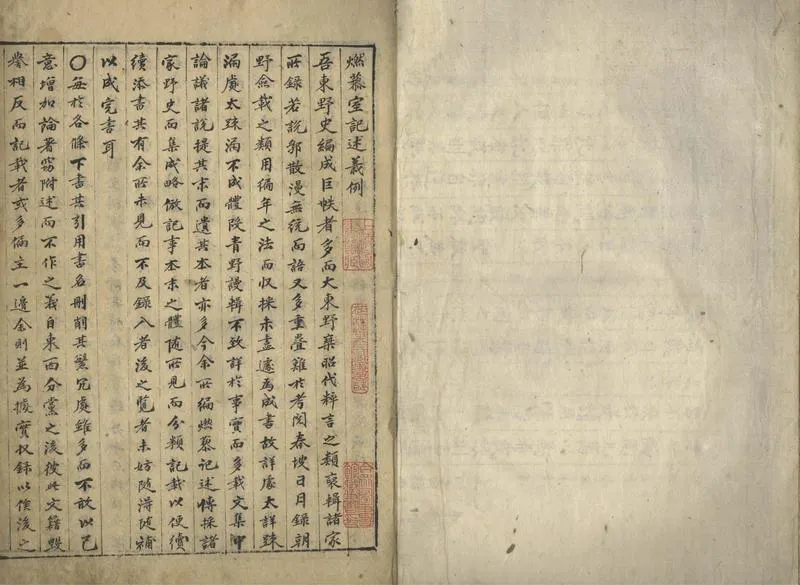 燃藜室記述義例
吾東野史編成巨帙者多而大東野乘昭代粹言之類裒輯諸家
所錄若說郛散漫無統而語又多重疊難於考閱春坡日月錄朝
野僉載之類用編年之法而収採未盡遽爲成書故詳處太詳踈
漏處太踈漏不成體段青野謾輯不致詳於事實而多載文集中
論議諸說提其末而遺其本者亦多今余所編燃藜記述博採諸
家野史而集成略倣記事本末之體隨所見而分類記載以便續
續添書其有余所未見而不及錄入者後之覽者未妨隨淂隨補
以成完書耳
〇每於各條下書其引用書名刪削其繁冗處雖多而不敢以己
意增加論著竊附述而不作之義自東西分黨之後彼此文籍毀
譽相反而記載者或多偏主一邊余則並爲據實收錄以俟後之